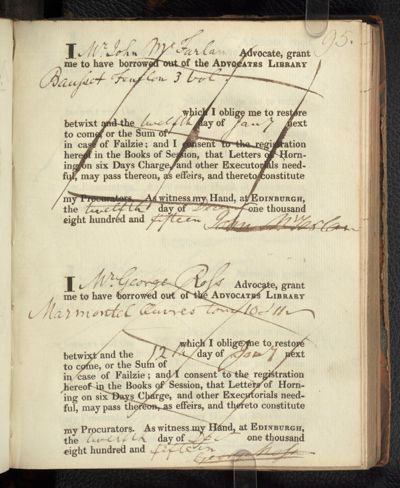 95.
I Mr. John McFarlan Advocate, grant
me to have borrowed out of the ADVOCATES LIBRARY
Bausset Fenelon 3 vol.
which I oblige me to restore
betwixt and the twelfth day of Jany next
to come, or the Sum of
in case of Failzie; and I consent to the registration
hereof in the Books of Session, that Letters of Horn-
ing on six Days Charge, and other Executorials need-
ful, may pass thereon, as effeirs, and thereto constitute
my Procurators. As witness my Hand, at EDINBURGH,
the twelfth day of Decr one thousand
eight hundred and fifteen John McFarlan
I Mr. George Ross Advocate, grant
me to have borrowed out of the ADVOCATES LIBRARY
Marmontel Œuvres tom
which I oblige me to restore
betwixt and the 12th day of Jany next
to come, or the Sum of
in case of Failzie; and I consent to the registration
hereof in the Books of Session, that Letters of Horn-
ing on six Days Charge, and other Executorials need-
ful, may pass thereon, as effeirs, and thereto constitute
my Procurators. As witness my Hand, at EDINBURGH,
the twelfth day of Decr one thousand
eight hundred and fifteen George Ross